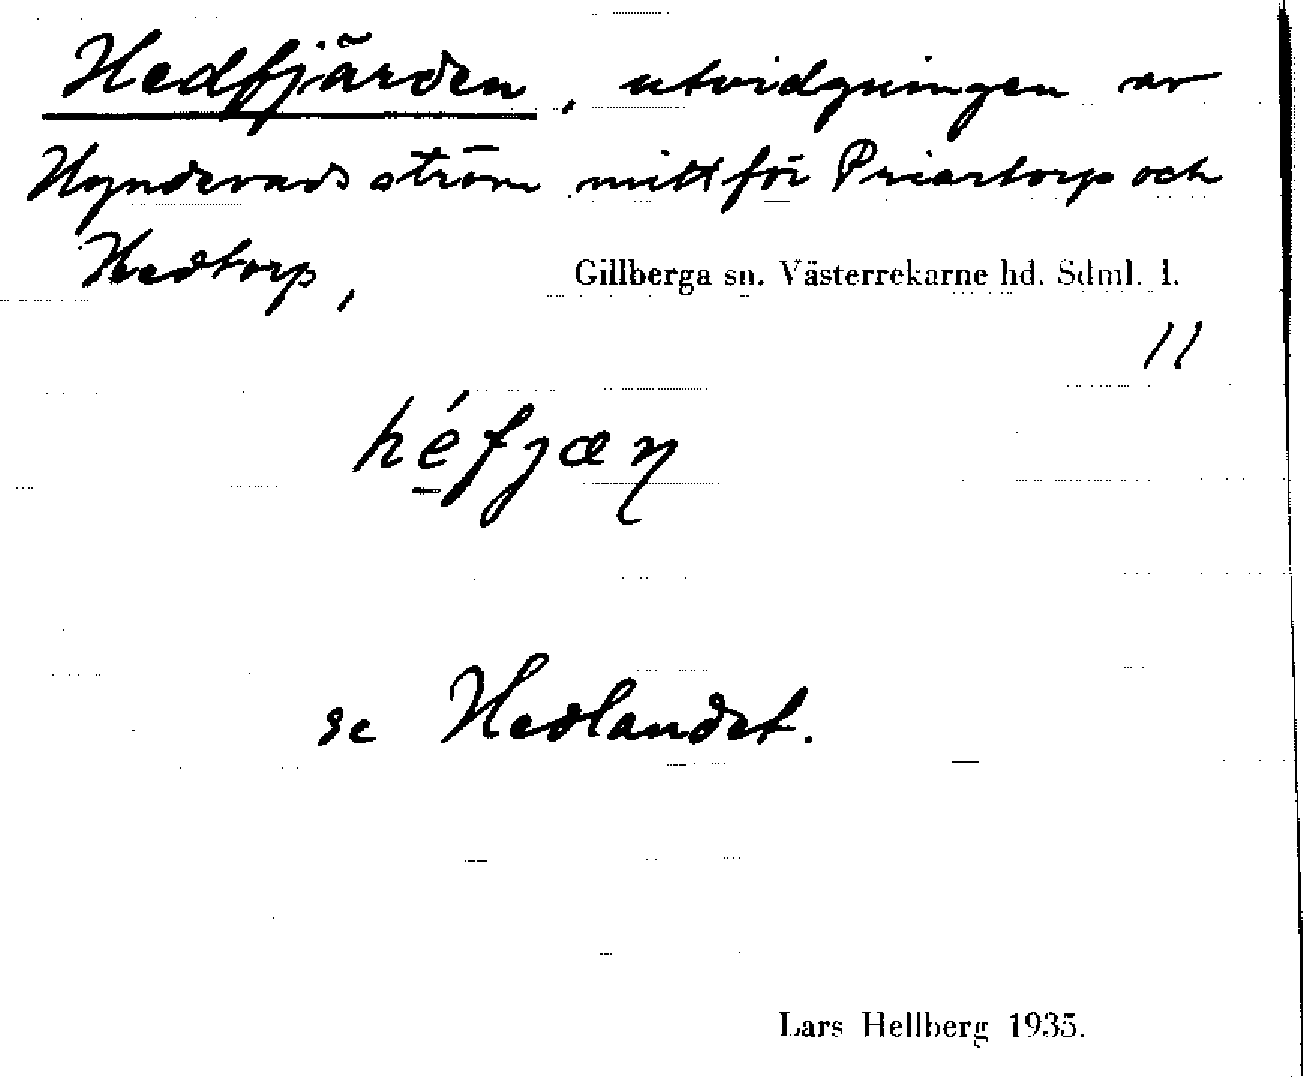 Hedfjärden, utvidgningen av
Hyndevadsström mitt för Priartorp och
Hedtorp,
Gillberga sn. Västerrekarne hd. Sdml. l.
11
héfjæɳ
se Hedlandet.
Lars Hellberg 1935.